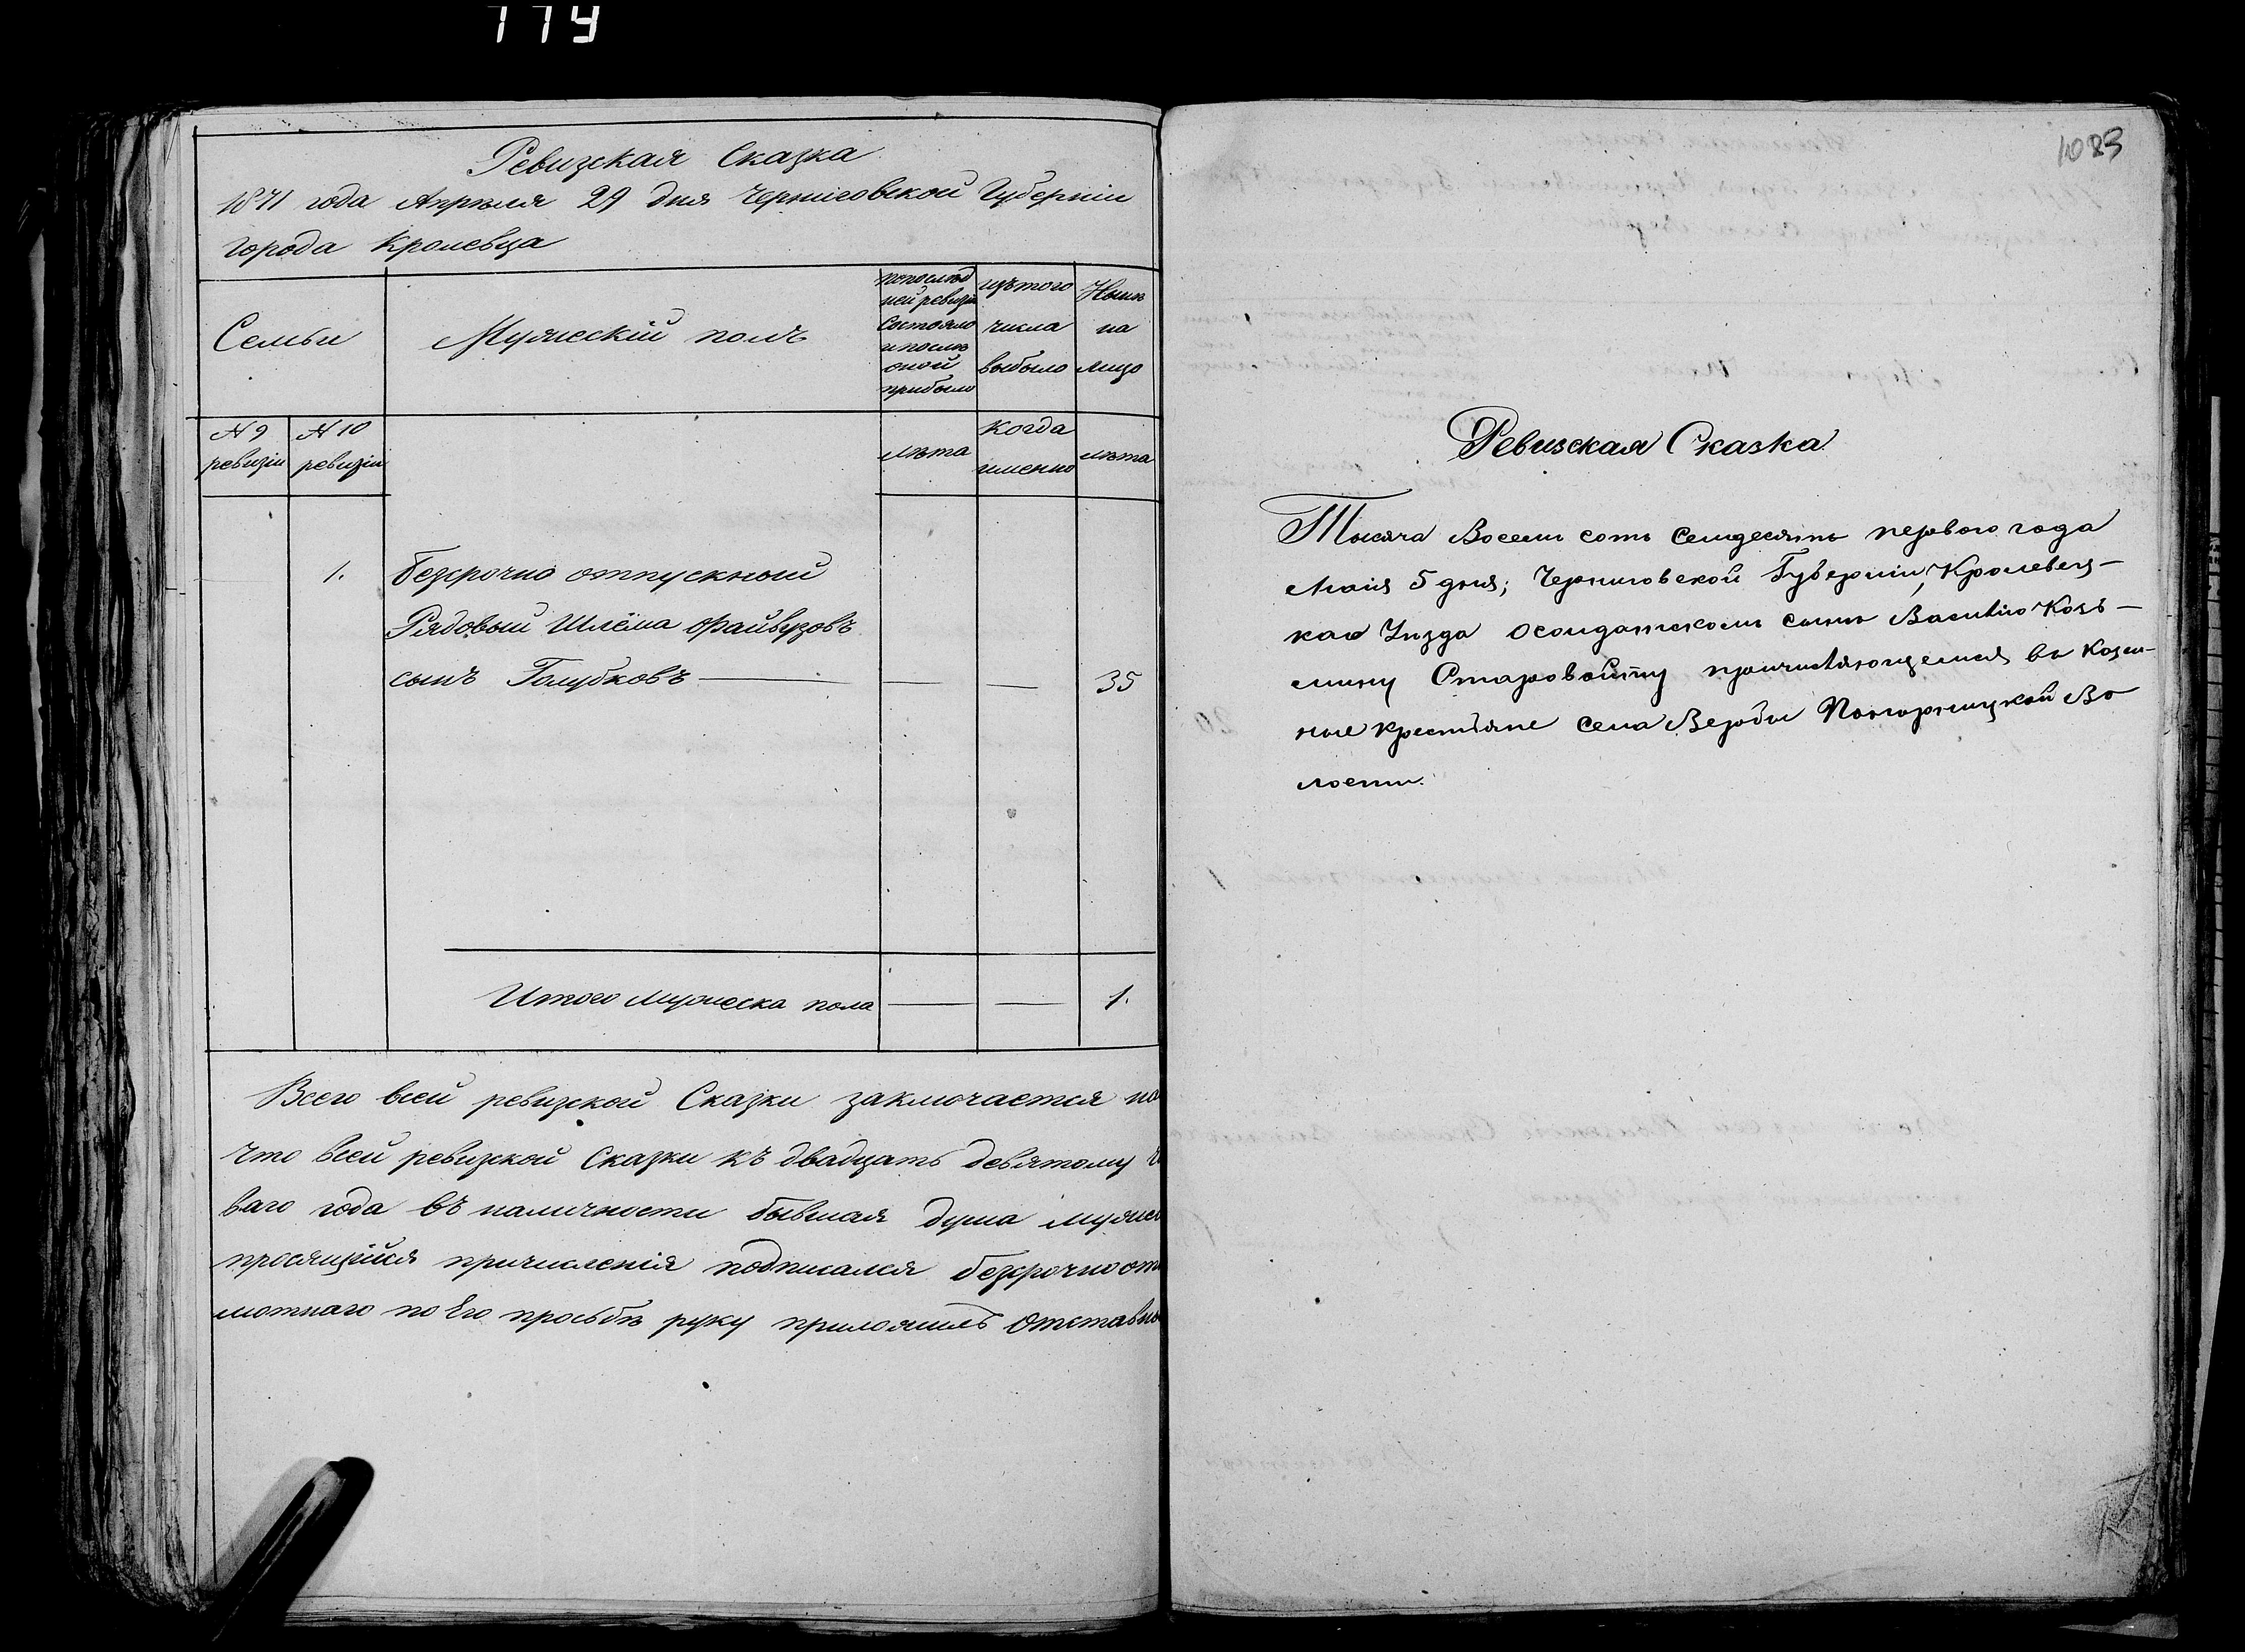 774
Ревизская Сказка
1871 года Апреля 29 дня Черниговской Губерніи
города Кролевца
Семьи
Мужескій полъ
по послѣд
ней ревизіи
состояло
и послѣ
оной
прибыло
изъ того
числа
выбыло
Нынѣ
на
лицо
№ 9
ревизіи
№ 10
ревизіи
лѣта
когда
именно
лѣта
1.
безсрочно отпускный
Рядовый Шлёма Файвузовъ
сынъ Голубковъ — — — 35
Итого мужеска пола — — 1.
Всего всей ревизской Сказки заключается на
что всей ревизской Сказки къ двадцать девятому
ваго года въ наличности бывшая душа мужес
просящійся причисленія подписался безсрочно отп
мотнаго по Его просьбѣ руку приложилъ Отставн
1083
Ревизская Сказка
Тысяча Восемь сотъ Семдесятъ первого года
Маія 5 дня; Черниговской Губерніи, Кролевец-
каго Уѣзда о солдатскомъ сынѣ Василію Козь-
мину Старовойту причисляющемся въ Казен-
ные крестьяне Села Вербы Понорницкой Во
лости.